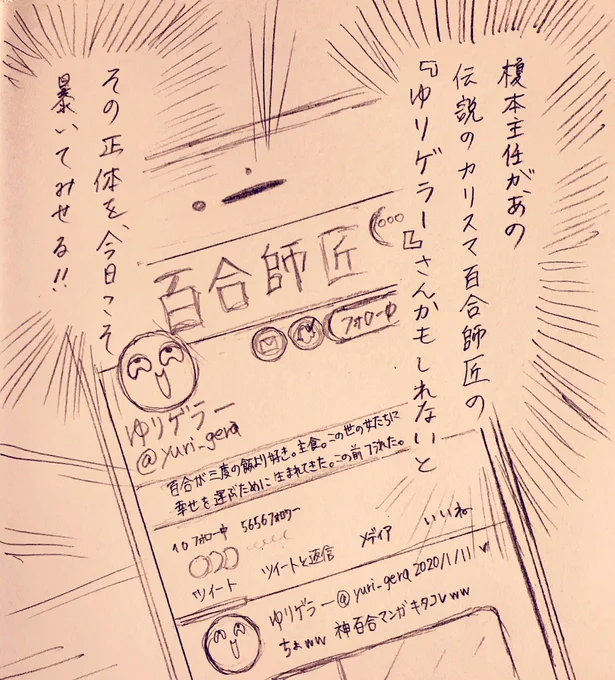 榎本主任があの
伝説のカリスマ百合師匠の
『ゆりゲラー』さんかもしれないと
その正体を、今日こそ
暴いてみせる!!
百合師匠
フォロー中
ゆりゲラー
@yuri_gera
百合が三度の飯より好き。主食。この世の女たちに
幸せを運ぶために生まれてきた。この前フられた。
10フォロー中 5656フォロワー
ツイート ツイートと返信 メディア いいね
ゆりゲラー@yuri_gera 2020/1/11
ちょww 神百合マンガキタコレww